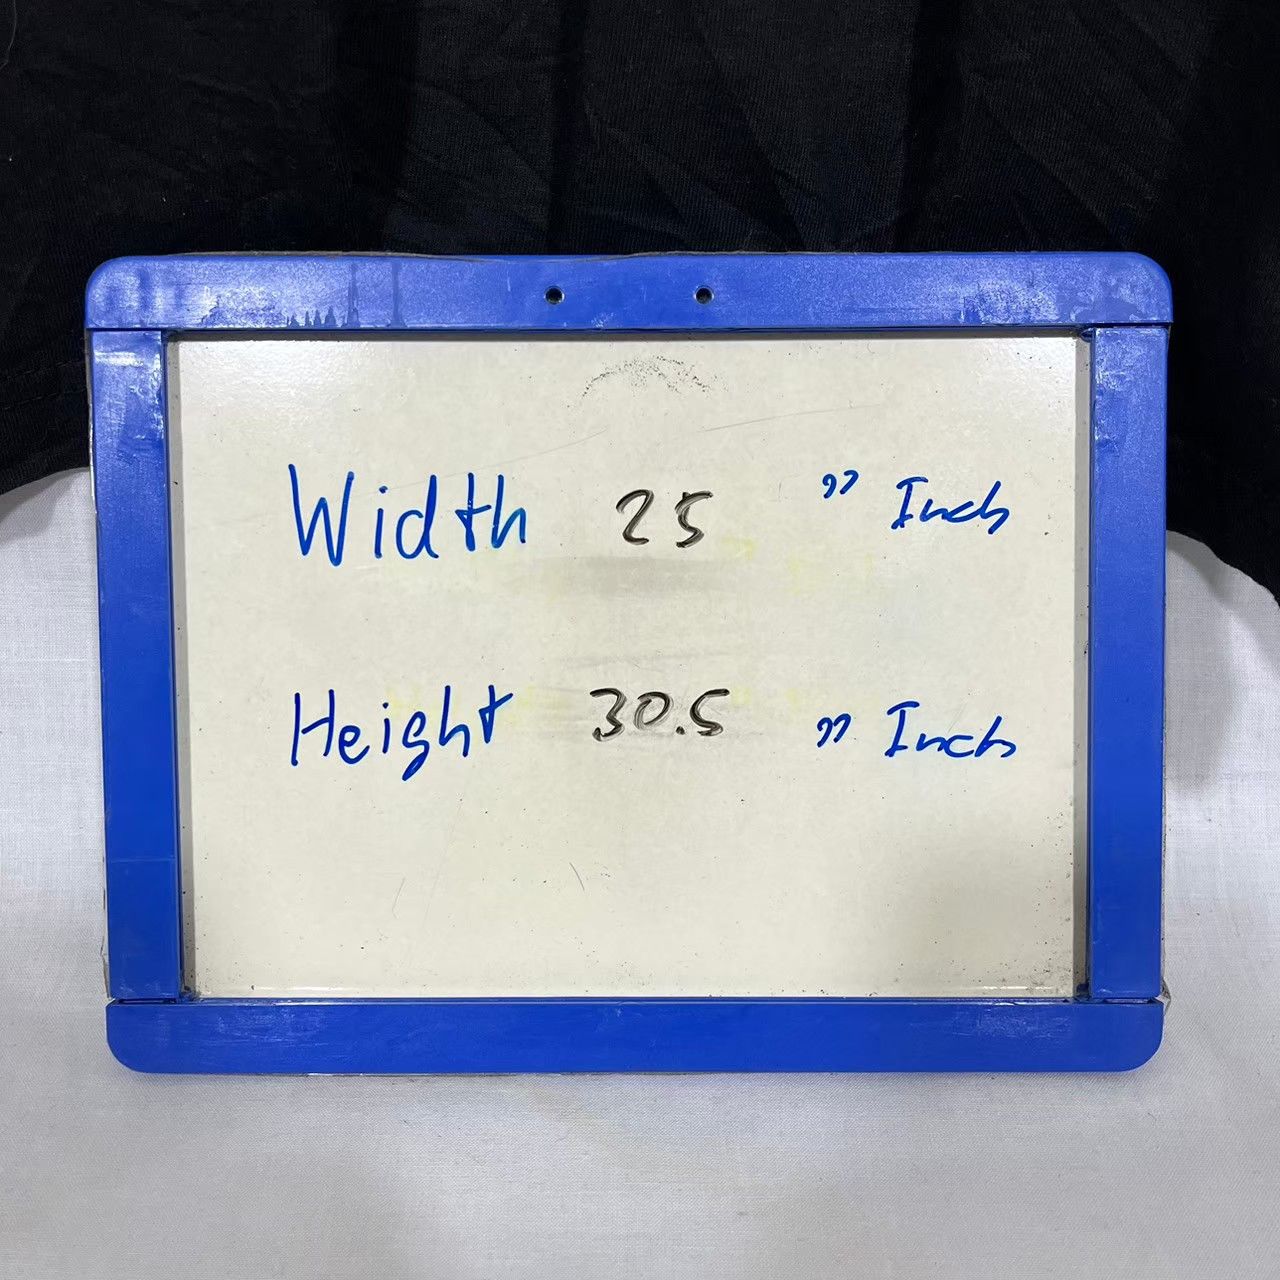 Width 25 " Inch
Height 30.5 " Inch